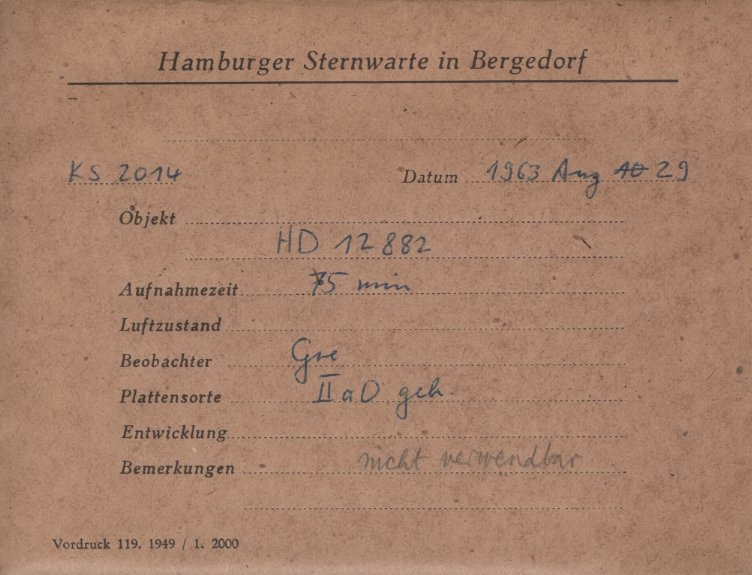 Hamburger Sternwarte in Bergedorf
KS 2014 Datum 1963 Aug 29
Objekt
HD 12882
Aufnahmezeit 75 min
Luftzustand
Beobachter Gre
Plattensorte II a O geh.
Entwicklung
Bemerkungen nicht verwendbar
Vordruck 119. 1949 / 1. 2000